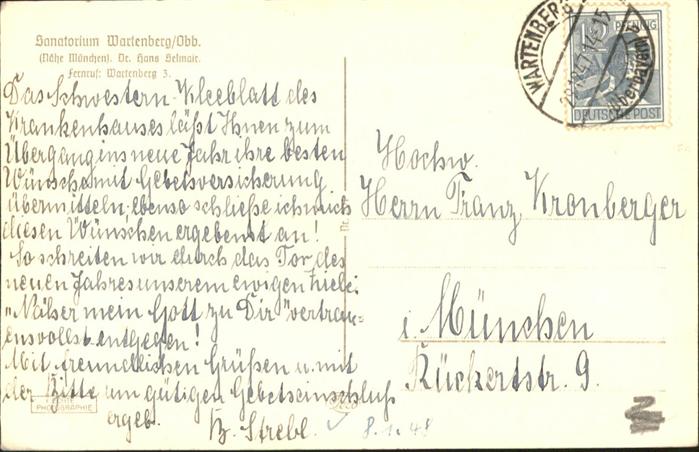 Sanatorium Wartenberg/Obb.
(Nähe München). Dr. Hans Selmair.
Fernruf: Wartenberg 3.
Das Schwestern-Kleeblatt des
Krankenhauses läßt Ihnen zum
Übergang ins neue Jahr ihre besten
Wünsche mit Gebetsversicherung
übermitteln, ebenso schließe ich mich
diesen Wünschen ergebenst an!
So schreiten wir durch das Tor des
neuen Jahres unserem ewigen Ziele:
"Näher mein Gott zu Dir" vertrau-
ensvollst entgegen!
Mit freundlichen Grüßen u. mit
der Bitte um gütigen Gebetseinschluß
ergeb.
Strebl.
8.1.48
PHOTOGRAPHIE
WARTENBERG
(Oberbayern)
12 PFENNIG
DEUTSCHE POST
Hochw.
Herrn Franz Kronberger
i. München
Rückertstr. 9.